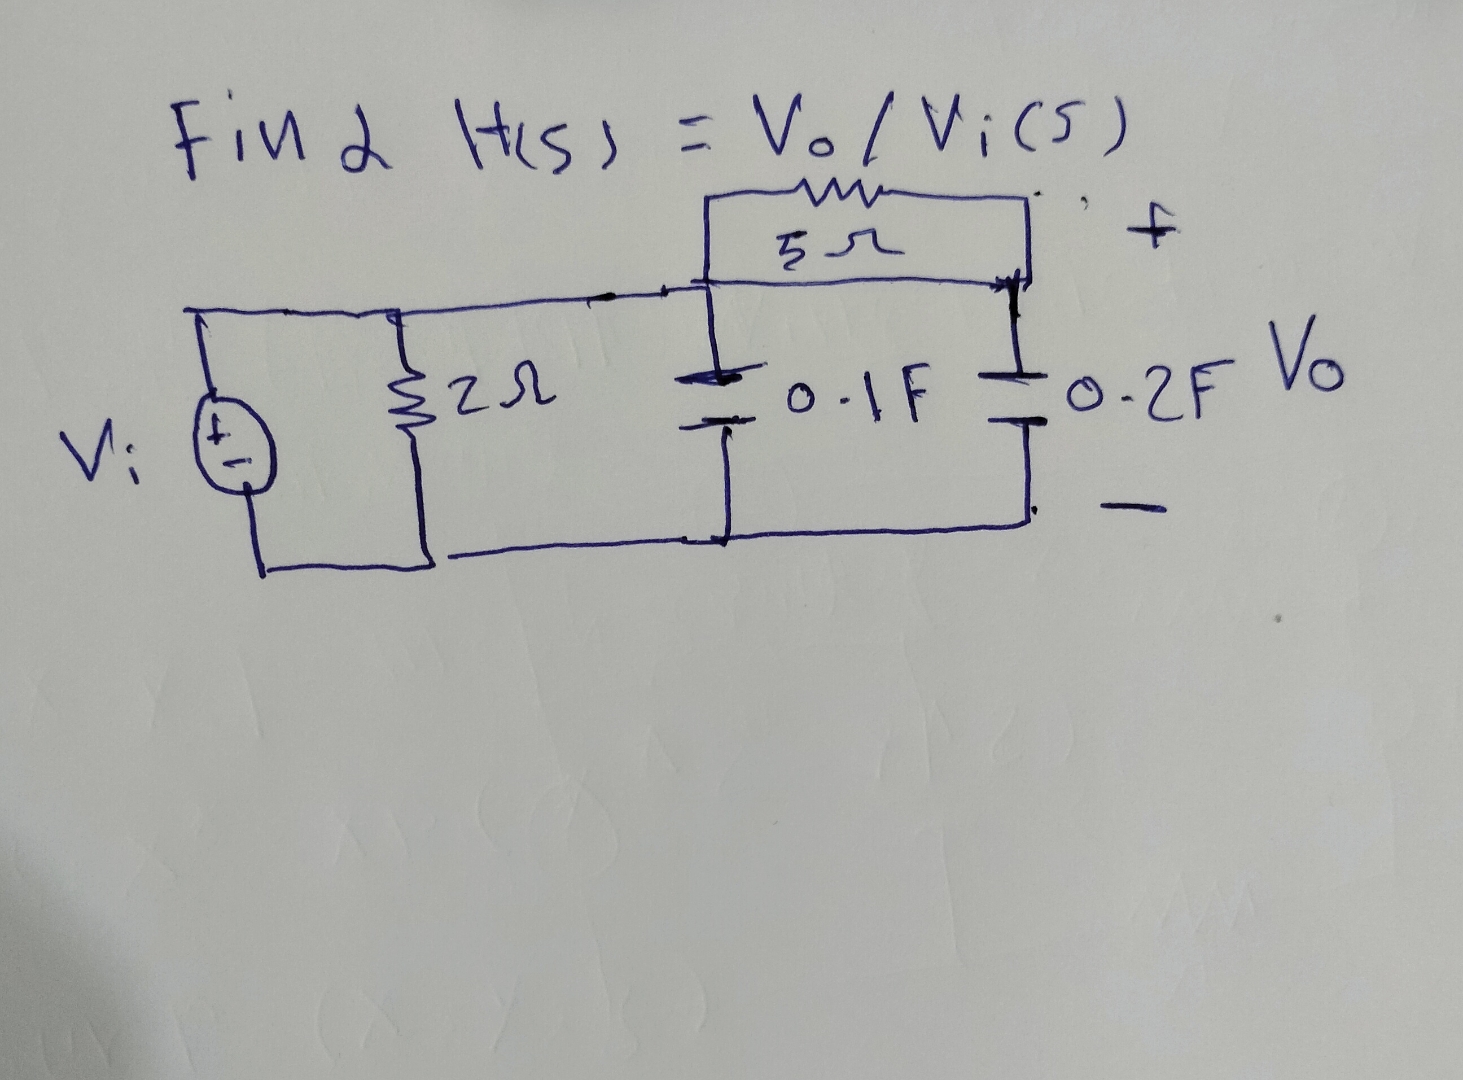 Find H(s) = Vo / Vi(s)
+
5Ω
Vi + - 2Ω 0.1F 0.2F Vo
-